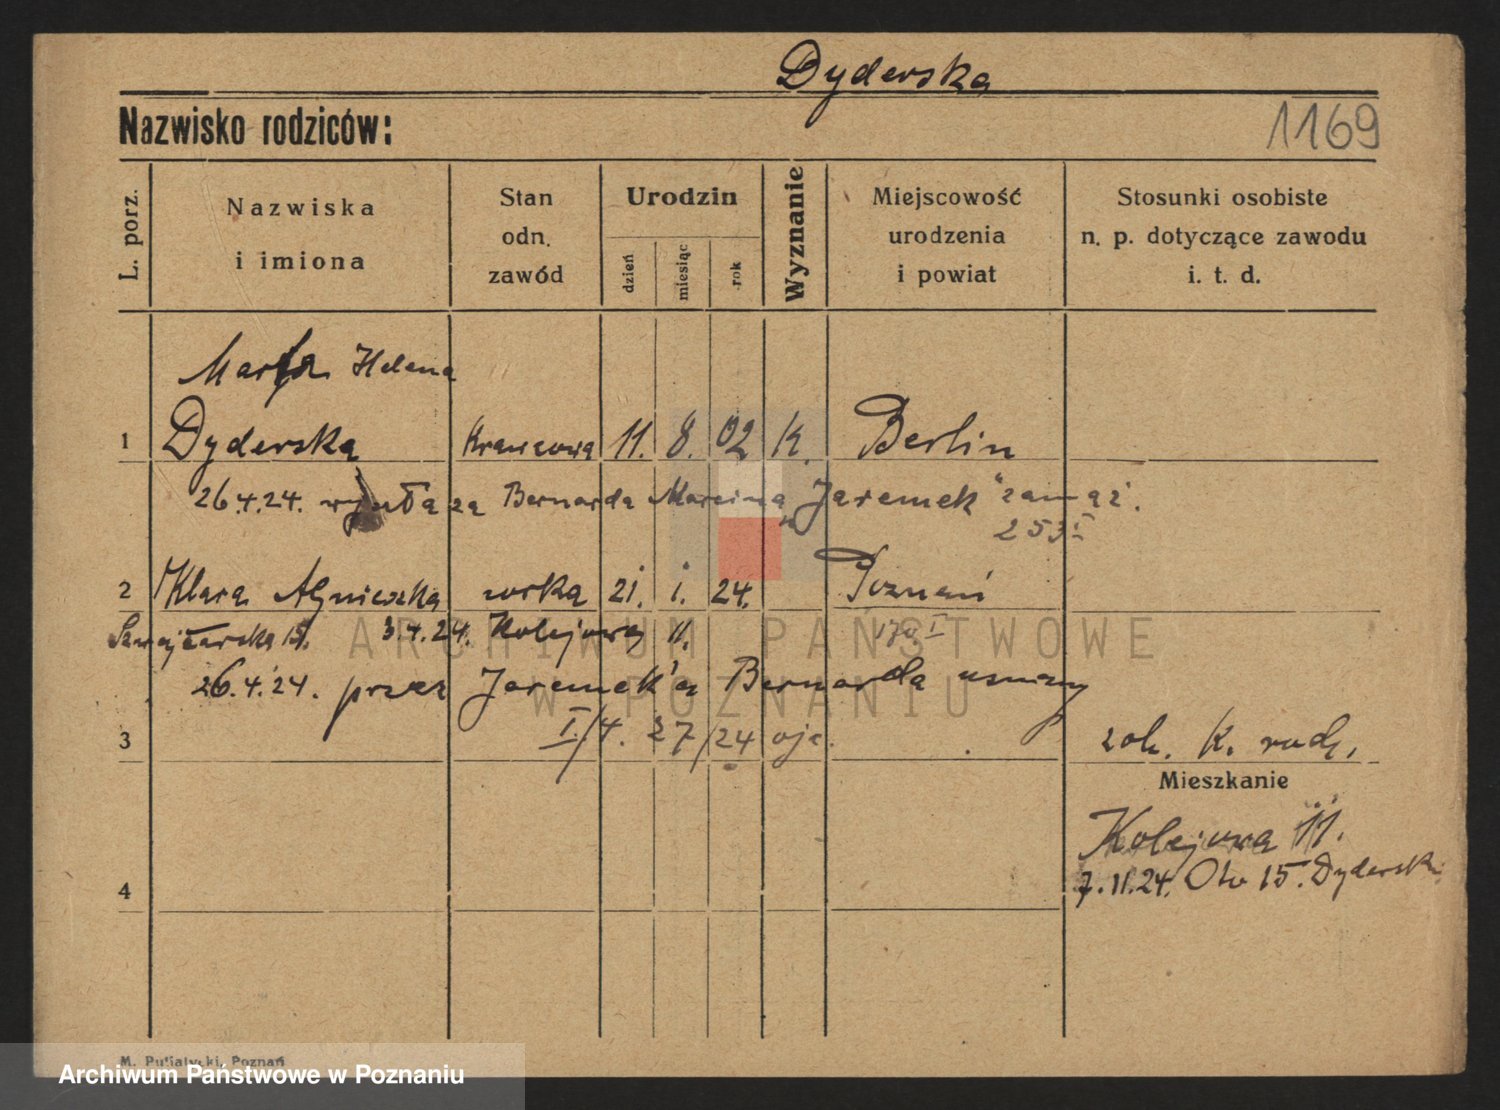 Dyderska
Nazwisko rodziców:
1169
L. porz.
Nazwiska
i imiona
Stan
odn.
zawód
Urodzin
dzień
miesiąc
rok
Wyznanie
Miejscowość
urodzenia
i powiat
Stosunki osobiste
n. p. dotyczące zawodu
i. t. d.
Marta Helena
1 Dyderska Krawcowa 11. 8. 02 K. Berlin
26.4.24. wyszła za Bernarda Marcina "Jaremek" zamąż.
253 I
2 Klara Agnieszka córka 21. 1. 24. Poznań
15. 3.4.24. Kolejowa 11. 170 I
26.4.24. przez Jaremek'a Bernarda uznany
3 I/4. 27/24 zob. K. rodz.
Mieszkanie
Kolejowa 11.
7.11.24. 15. Dyderski
4
M. Putiatycki, Poznań
ARCHIWUM PAŃSTWOWE
W POZNANIU
Archiwum Państwowe w Poznaniu